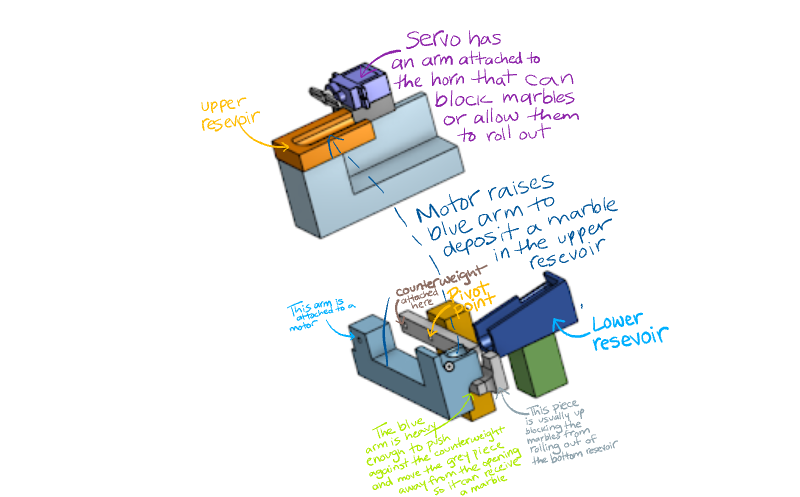 Servo has
an arm attached to
the horn that can
block marbles
or allow them
to roll out
upper
resevoir
Motor raises
blue arm to
deposit a marble
in the upper
resevoir
counterweight
attached
here
Pivot
Point
This arm is
attached to a
motor
Lower
resevoir
The blue
arm is heavy
enough to push
against the counterweight
and move the grey piece
away from the opening
so it can receive
a marble
This piece
is usually up
blocking the
marbles from
rolling out of
the bottom resevoir